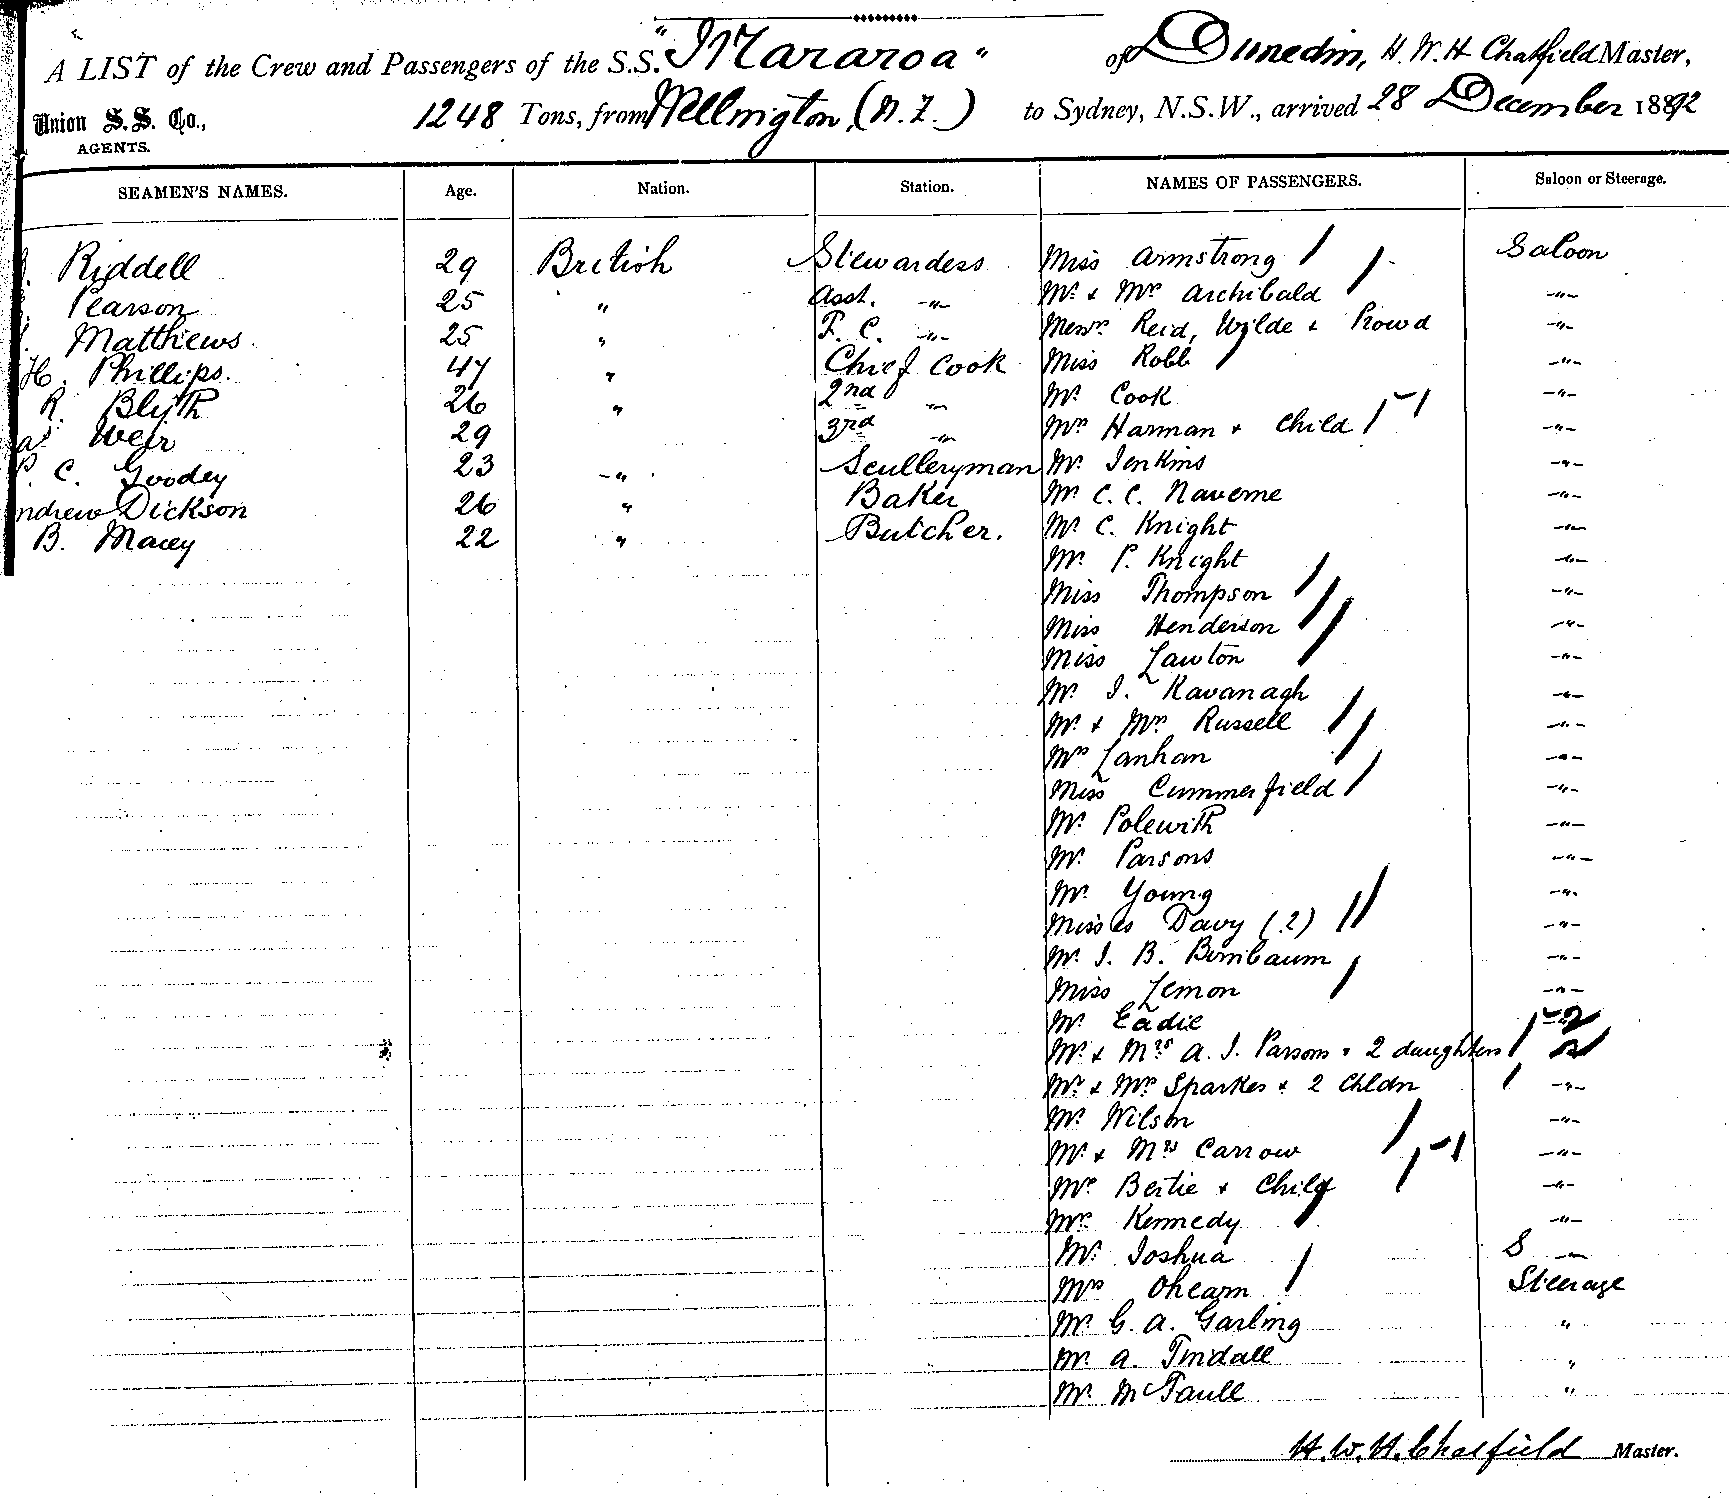 A LIST of the Crew and Passengers of the S.S. "Mararoa" of Dunedin, H. W. H. Chatfield Master,
Union S. S. Co., AGENTS. 1248 Tons, from Wellington (N.Z.) to Sydney, N.S.W., arrived 28 December 1892
SEAMEN'S NAMES. Age. Nation. Station. NAMES OF PASSENGERS. Saloon or Steerage.
Riddell 29 British Stewardess Miss Armstrong Saloon
Pearson 25 " Asst. -"- Mr. & Mrs Archibald -"-
Matthews 25 " F. C. -"- Messrs Reid, Wylde & Prowd -"-
H. Phillips. 47 " Chief Cook Miss Robb -"-
R. Blyth 26 " 2nd -"- Mr. Cook -"-
Weir 29 3rd -"- Mrs Harman & Child -"-
P. C. Goodey 23 -"- Sculleryman Mr. Jenkins -"-
ndrew Dickson 26 " Baker Mr. C. C. -"-
B. Macey 22 " Butcher. Mr. C. Knight -"-
Mr. P. Knight -"-
Miss Thompson -"-
Miss Henderson -"-
Miss Lawton -"-
Mr. J. Kavanagh -"-
Mr. & Mrs. Russell -"-
Mrs Lanham -"-
Miss Cummerfield -"-
Mr. Polewith -"-
Mr. Parsons -"-
Mr. Young -"-
Misses Davy (2) -"-
Mr. J. B. Birnbaum -"-
Miss Lemon -"-
Mr. Eadie
Mr. & Mrs A. J. Parsons & 2 daughters
Mr. & Mrs Sparkes & 2 Chldn -"-
Mr. Wilson -"-
Mr. & Mrs Carrow -"-
Mrs Bertie & Child -"-
Mrs. Kennedy -"-
Mr. Joshua S -"-
Mrs Ohearn Steerage
Mr. G. A. Garling "
Mr. A. Tindall "
Mr. McFaull "
H. W. H. Chatfield Master.